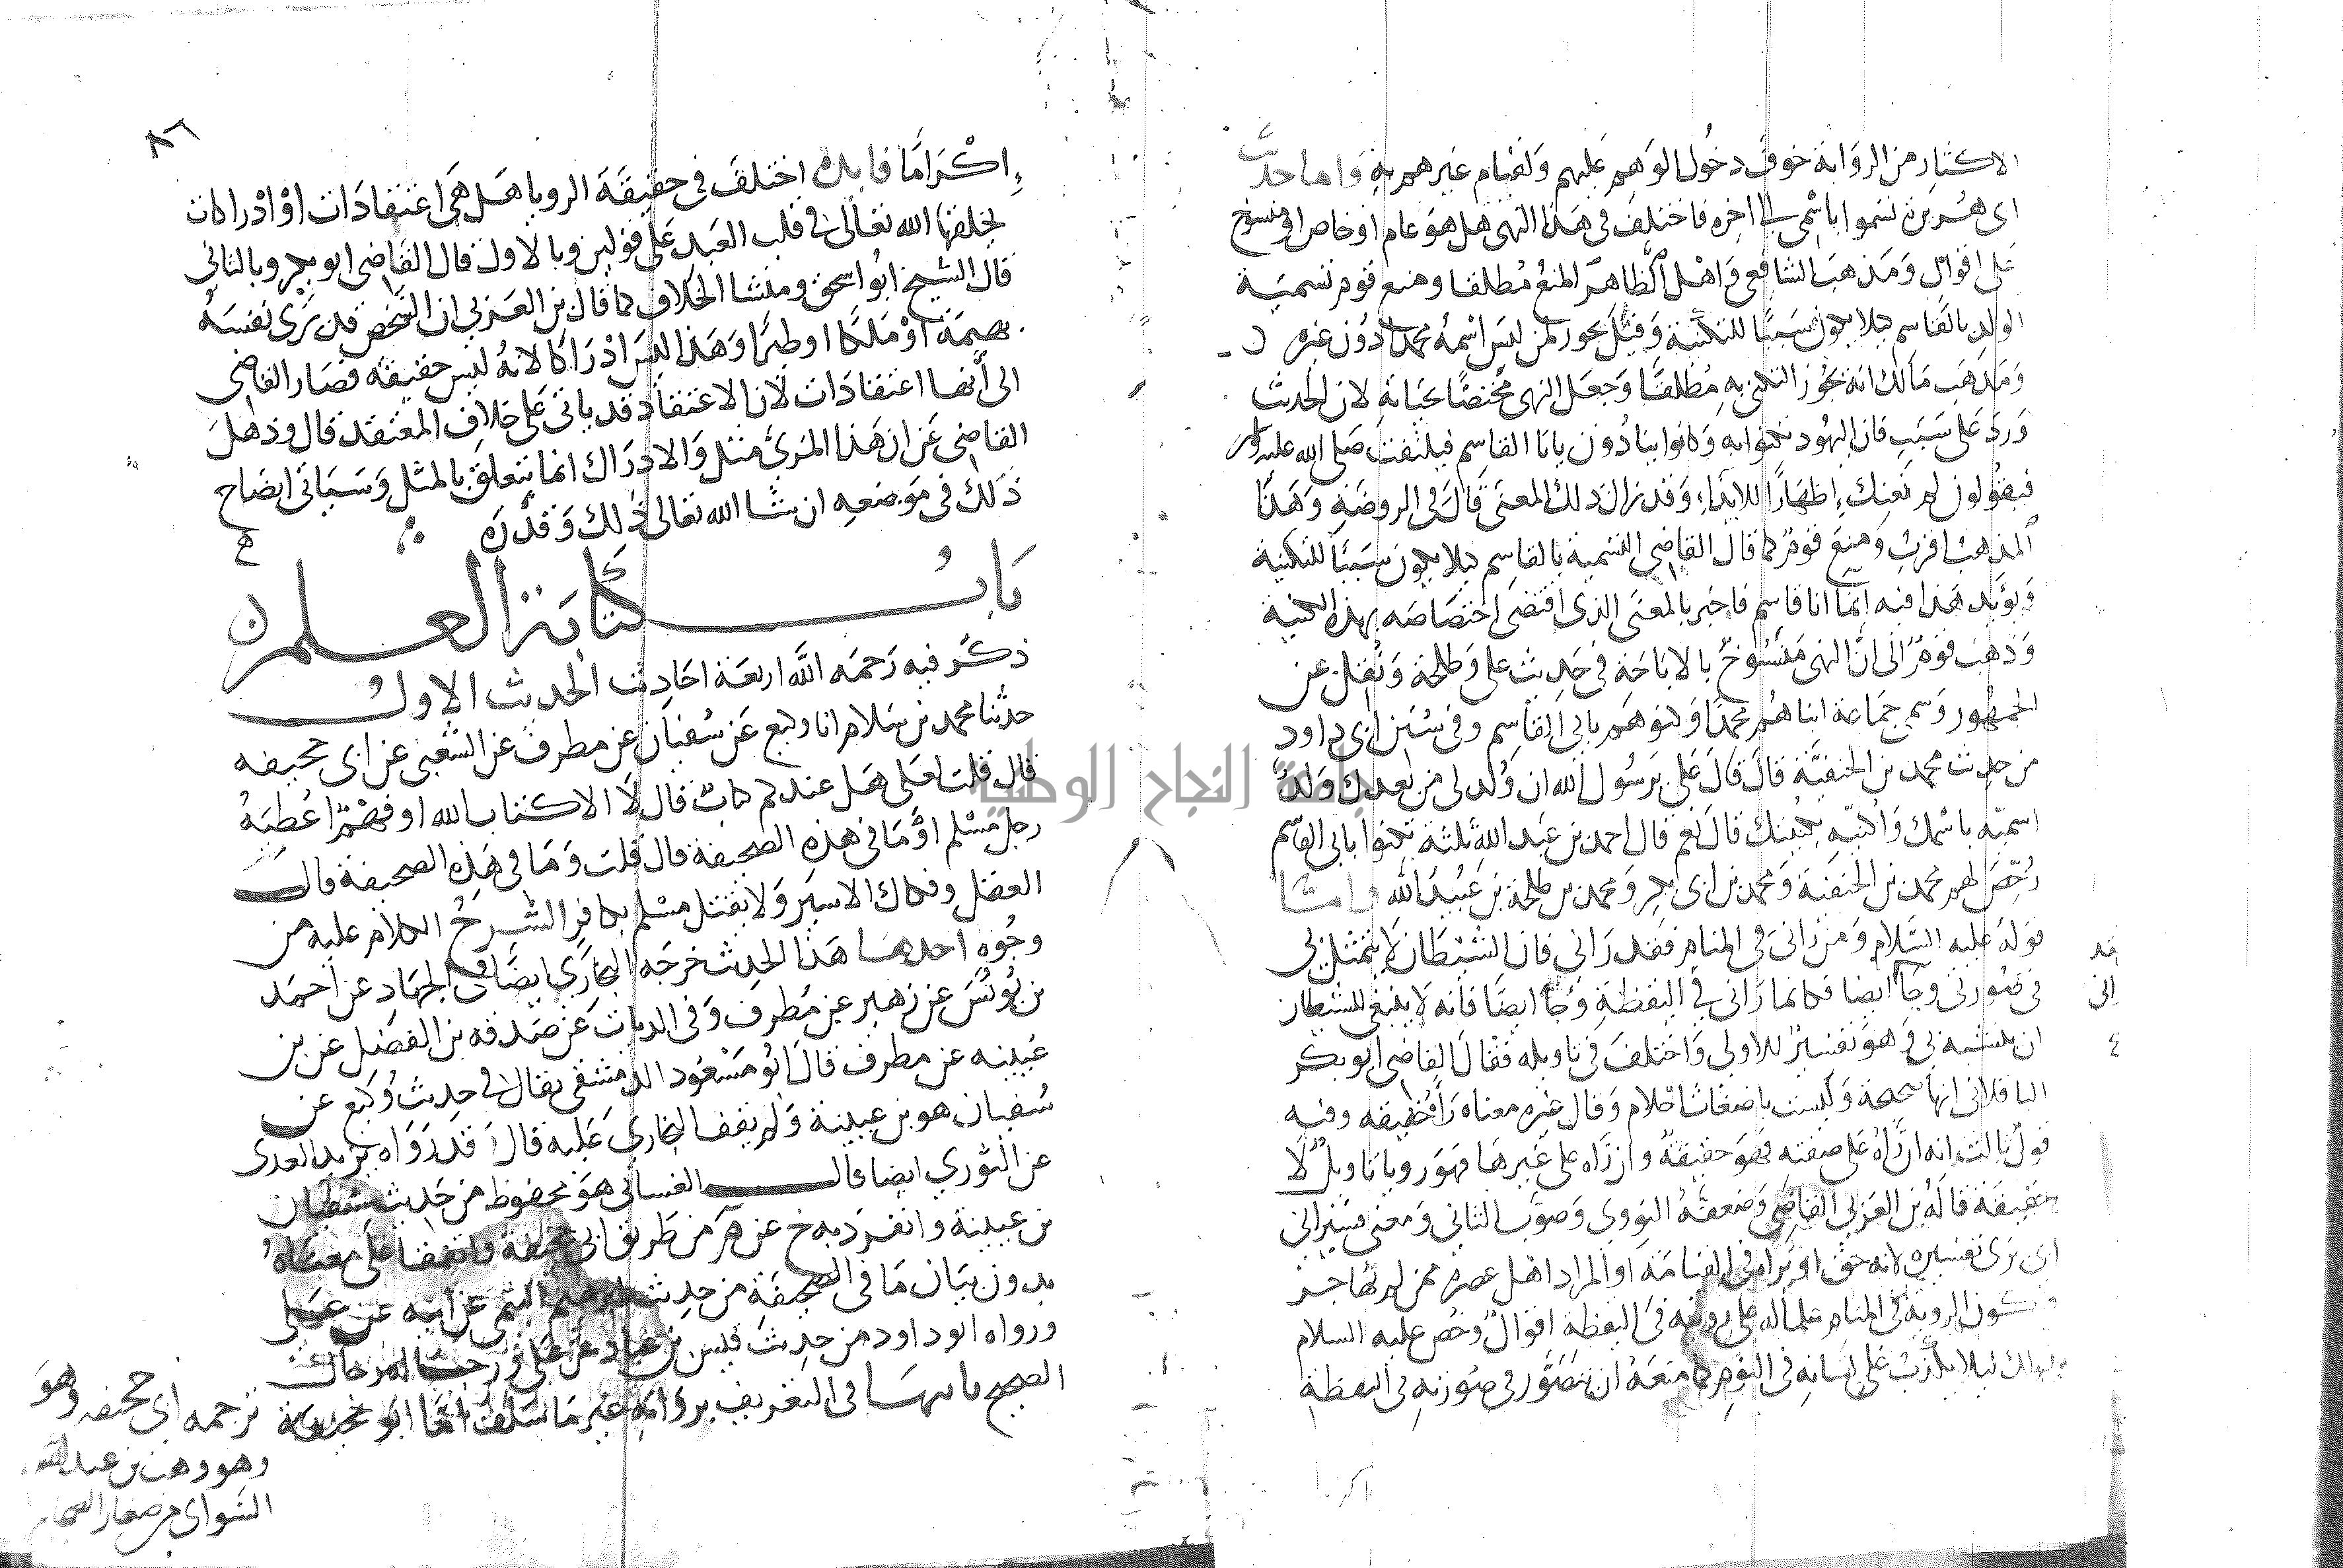 الاكثار من الرواية خوف دخول الوهم عليهم ولقيام غيرهم به واما حديث
ابى هريرة تسموا باسمى الى اخره فاختلف فى هذا النهى هل هو عام او خاص او منسوخ
على اقوال ومذهب الشافعى واهل الظاهر المنع مطلقا ومنع قوم تسمية
الولد بالقاسم ليلا يكون سببا للتكنية وقيل يجوز لمن ليس اسمه محمد دون غيره
ومذهب مالك انه يجوز التكنى به مطلقا وجعل النهى مختصا بحياته لان الحديث
ورد على سبب فان اليهود تكنوا به وكانوا ينادون يابا القاسم فيلتفت صلى الله عليه وسلم
فيقولون لم نعنك اظهارا للايذاء وقد زال ذلك المعنى قال فى الروضة وهذا
المذهب اقرب ومنع قوم كما قال القاضى التسمية بالقاسم ليلا يكون سببا للتكنية
ويؤيد هذا فيه انما انا قاسم فاخبر بالمعنى الذى اقتضى اختصاصه بهذه الكنية
وذهب قوم الى ان النهى منسوخ بالاباحة فى حديث على وطلحة ونقل عن
الجمهور وسمى جماعة ابناهم محمدا وكنوهم بابى القاسم وفى سنن ابى داود
من حديث محمد بن الحنفية قال قال على يرسول الله ان ولد لى من بعدك ولد
اسميه باسمك واكنيه بكنيتك قال نعم قال احمد بن عبد الله ثلثة تكنوا بابى القاسم
رخص لهم محمد بن الحنفية ومحمد بن ابى بكر ومحمد بن طلحة بن عبيد الله واما
قوله عليه السلام ومن رانى فى المنام فقد رانى فان الشيطان لا يتمثل بى
فى صورتى وجا ايضا فكانما رانى فى اليقظة وجا ايضا فانه لا ينبغى للشيطان
ان يتشبه بى وهو تفسير للاولى واختلف فى تاويله فقال القاضى ابو بكر
الباقلانى انها صحيحة وليست باضغاث احلام وقال غيره معناه رآه حقيقه وفيه
قول ثالث انه ان راه على صفته فهو حقيقة وان راه على غيرها فهو رويا تاويل لا
حقيقة قاله بن العربى القاضى وضعفه النووى وصوب الثانى ومعنى فسيرانى
اى يرى تفسيره لانه حق او يراه فى القيامة او المراد اهل عصره ممن لم يهاجر
وتكون الروية فى المنام علما له على رويته فى اليقظة اقوال وخص عليه السلام
بذلك ليلا يكذب على لسانه فى النوم كما منعه ان يتصور فى صورته فى اليقظة
قد
اكر
٨٦
اكراما فايدة اختلف فى حقيقة الرويا هل هى اعتقادات او ادراكات
يخلقها الله تعالى فى قلب العبد على قولين وبالاول قال القاضى ابو بكر وبالثانى
قال الشيخ ابو اسحق ومنشا الخلاف كما قال بن العربى ان الشخص قد يرى نفسه
بهيمة او ملكا او طيرا وهذا ليس ادراكا لانه ليس حقيقه فصار القاضى
الى انها اعتقادات لان الاعتقاد قد ياتى على خلاف المعتقد قال وذهل
القاضى عن ان هذا المرى مثل والادراك انما يتعلق بالمثل وسياتى ايضاح
ذلك فى موضعه ان شا الله تعالى ذلك وقدره
باب كتابة العلم
ذكر فيه رحمه الله اربعة احاديث الحديث الاول
حدثنا محمد بن سلام انا وكيع عن سفيان عن مطرف عن الشعبى عن ابى جحيفه
قال قلت لعلى هل عندكم كتاب قال لا الا كتاب الله او فهم اعطيه
رجل مسلم او ما فى هذه الصحيفة قال قلت وما فى هذه الصحيفة قال
العقل وفكاك الاسير ولا يقتل مسلم بكافر الشرح الكلام عليه من
وجوه احدها هذا الحديث خرجه البخارى ايضا فى الجهاد عن احمد
بن يونس عن زهير عن مطرف وفى الديات عن صدقه بن الفضل عن بن
عيينه عن مطرف قال ابو مسعود الدمشقى يقال فى حديث وكيع عن
سفيان هو بن عيينة ولم يقف البخارى عليه قال قد رواه يزيد العدنى
عن الثورى ايضا قال الغسانى هو محفوظ من حديث سفيان
بن عيينة وانفرد به خ عن م من طريق ابى جحيفة واتفقا على معناه
بدون بيان ما فى الصحيفة من حديث ابرهيم التيمى عن ابيه عن على
ورواه ابو داود من حديث قيس بن عباد عن على
الصحيح ثانيها فى التعريف برواته غير ما سلف اما ابو جحيفة
ترجمه ابى جحيفه وهو
وهو وهب بن عبد الله
السواى من صغار الصحابة
جامعة النجاح الوطنية